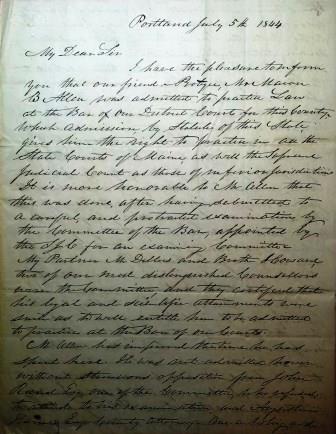 Portland July 5th 1844
My Dear Sir
I have the pleasure to inform
you that our friend & Protege, Mr Macon
B Allen was admitted to practice Law
at the Bar of our District Court for this County,
which admission by Statute of this State
gives him the right to practice in all the
State Courts of Maine as well the Supreme
Judicial Court as those of inferior jurisdiction
It is more honorable to Mr Allen that
this was done, after having submitted to
a careful, and protracted examination by
the Committee of the Bar, appointed by
the for an examining Committee
My Partner Mr and &
two of our most distinguished Counsellors
were the Committee and they certified that
his legal and attainments were
such as to well entitle him to be admitted
to practice at the Bar of our Courts.
Mr Allen has improved the time he has
spent here. He was not admitted however
without strenuous opposition from John
Rand Esq one of the Committee, who refused
to attend to his examination and Augustine
Esq County Attorney.